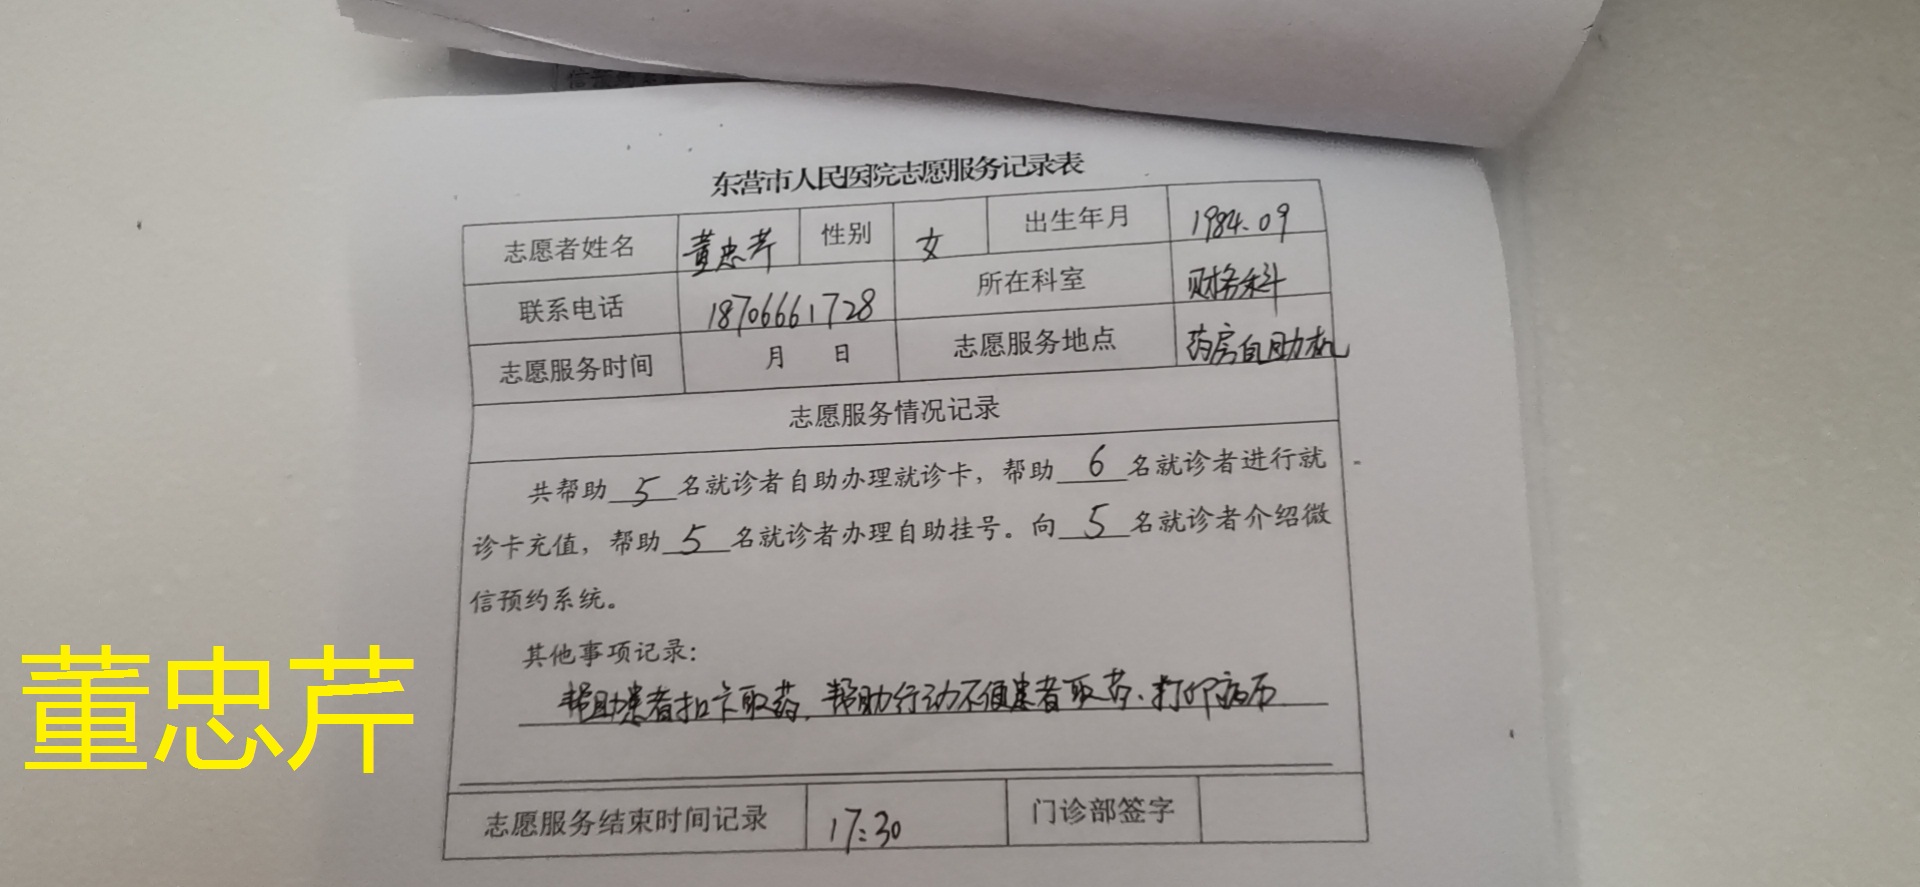 东营市人民医院志愿服务记录表
志愿者姓名 董忠芹 性别 女 出生年月 1984.09
联系电话 18706661728 所在科室 财务科
志愿服务时间 月 日 志愿服务地点 药房自助机
志愿服务情况记录
共帮助 5 名就诊者自助办理就诊卡，帮助 6 名就诊者进行就
诊卡充值，帮助 5 名就诊者办理自助挂号。向 5 名就诊者介绍微
信预约系统。
其他事项记录：
帮助患者扣卡取药、帮助行动不便患者取药、打印病历
志愿服务结束时间记录 17:30 门诊部签字
董忠芹